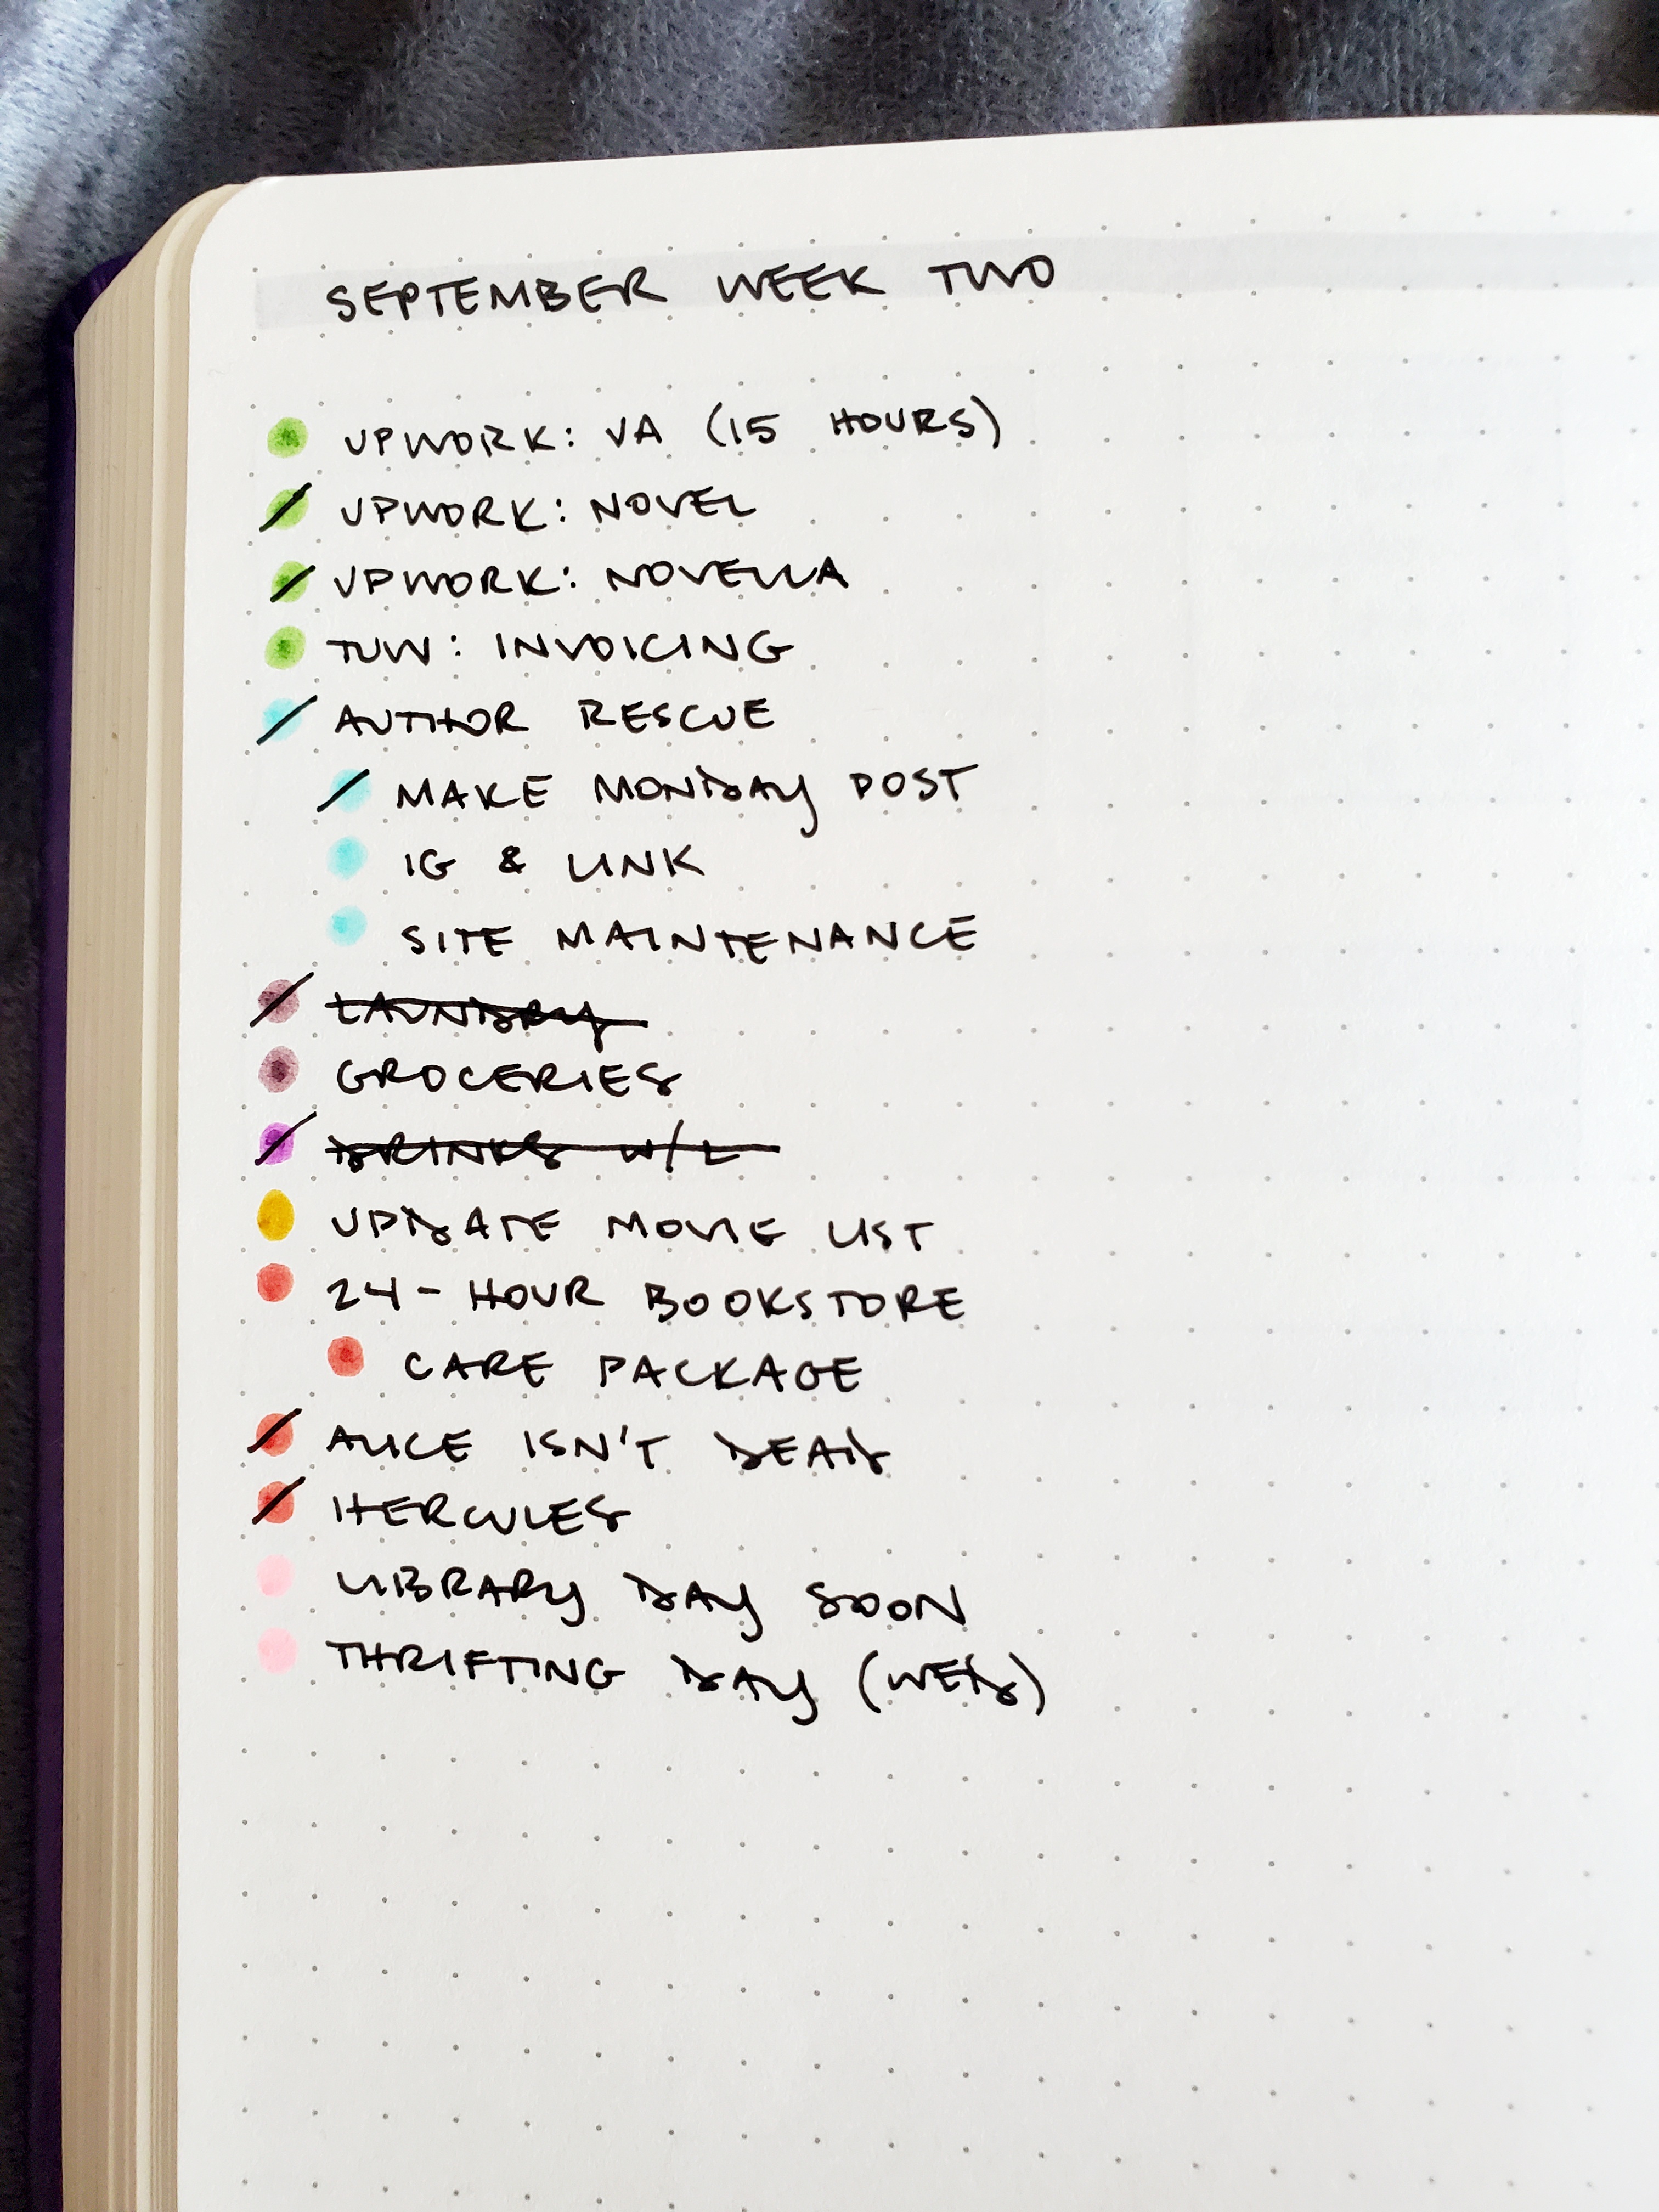 SEPTEMBER WEEK TWO
UPWORK: VA (15 HOURS)
UPWORK: NOVEL
UPWORK: NOVELLA
TUW: INVOICING
AUTHOR RESCUE
MAKE MONDAY POST
IG & LINK
SITE MAINTENANCE
LAUNDRY
GROCERIES
DRINKS W/L
UPDATE MOVIE LIST
24-HOUR BOOKSTORE
CARE PACKAGE
ALICE ISN'T DEAD
HERCULES
LIBRARY DAY SOON
THRIFTING DAY (WED)